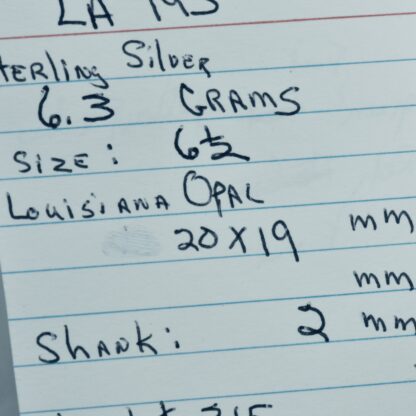 LA 193
Sterling Silver
6.3 GRAMS
SIZE: 6½
Louisiana Opal
20 x 19 mm
mm
Shank: 2 mm